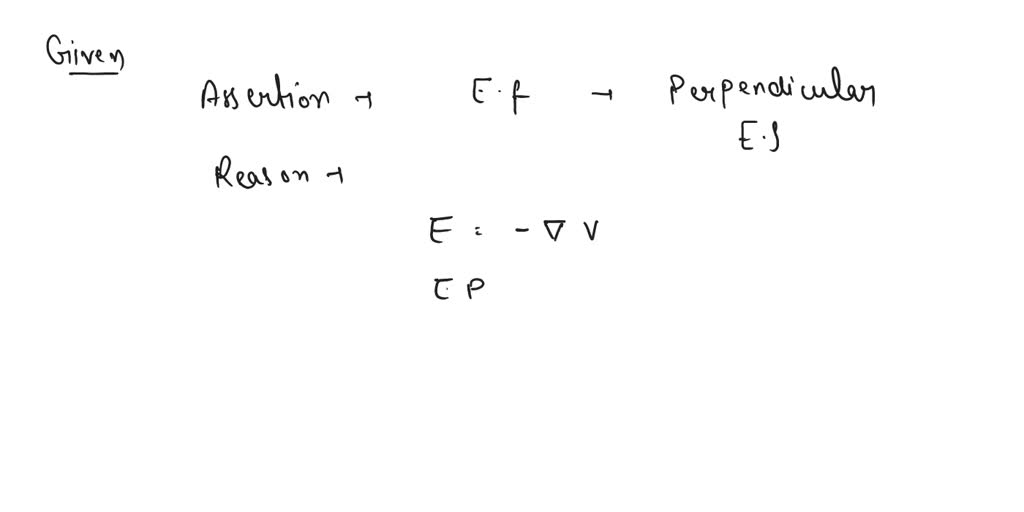 Given
Assertion → E.f → Perpendicular
E.S
Reason →
E = - ∇ V
E P